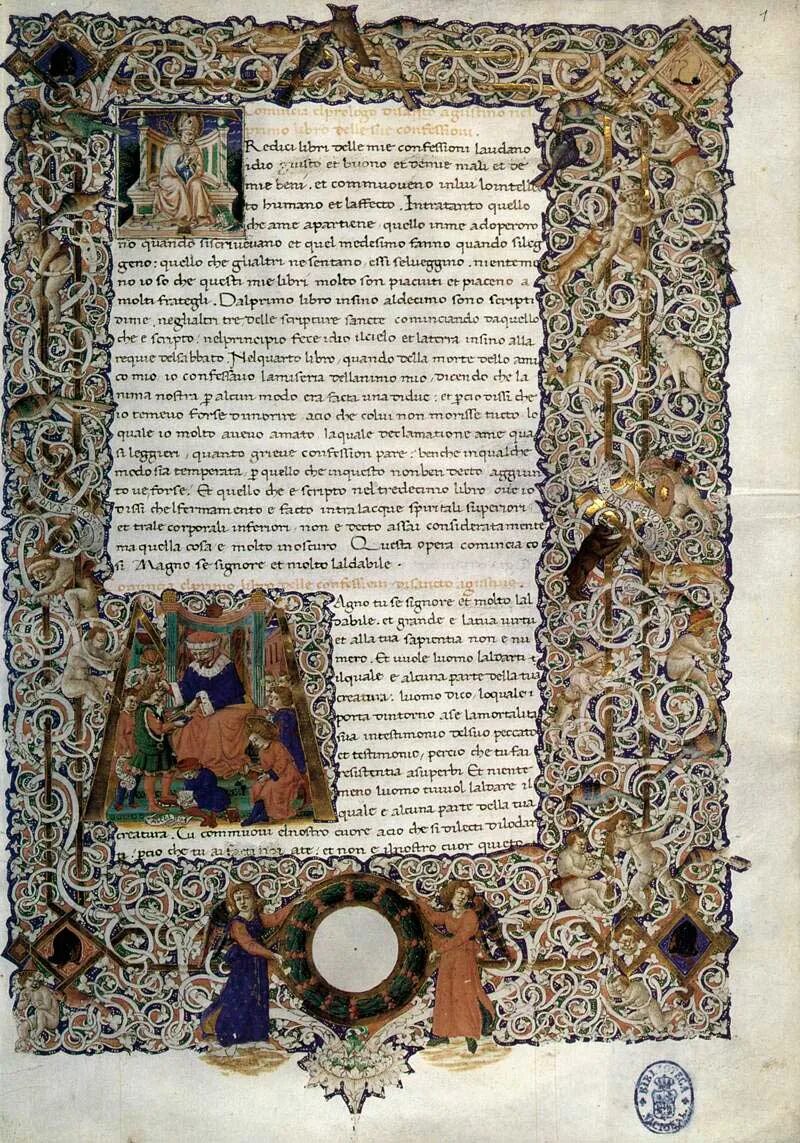 1
Comincia elprologo disancto agustino nel
primo libro delle sue confessioni.
Redici libri delle mie confessioni laudano
idio giusto et buono et demie mali et de
mie beni, et commuoveno inlui lointelle
to humano et laffecto. Intratanto quello
che ame apartiene, quello inme adoperoro
no quando siscriveuano et quel medesimo fanno quando sileg
geno: quello che glialtri ne sentano, essi selveggino. nientemo
no io so che questi mie libri molto son piaciuti et piaceno a
molti frategli. Dalprimo libro insino aldecimo sono scripti
dime, neglialtri tre delle scripture sancte cominciando daquello
che e scripto: nelprincipio fece idio ilcielo et laterra insino alla
requie delsabbato. Nelquarto libro, quando della morte dello ami
co mio io confessavo lamiseria dellanimo mio, dicendo che la
nima nostra p alcun modo era facta una didue: et pcio dissi che
io temevo forse dimorire, acio che colui non morisse tucto lo
quale io molto avevo amato laquale declamatione ame qua
si leggieri, quanto grieve confession pare: benche inqualche
modo sia temperata, p quello che inquesto nonben decto aggiun
to ve forse. Et quello che e scripto nel tredecimo libro ove io
dissi chelfermamento e facto intralacque spiritali superiori
et trale corporali inferiori, non e decto assai consideratamente
ma quella cosa e molto inoscuro. Questa opera comincia co
si Magno se signore et molto laldabile.
Comincia elprimo libro delle confessioni disancto agustino.
Agno tu se signore et molto lal
dabile. et grande e latua virtu
et alla tua sapientia non e nu
mero. Et vuole luomo laldarti
ilquale e alcuna parte della tua
creatura. luomo dico, loquale
porta dintorno ase lamortalita
sua intestimonio delsuo peccato
et testimonio, percio che tu fai
resistentia asuperbi Et niente
meno luomo tivuol laldare il
quale e alcuna parte della tua
creatura. Tu commuovi elnostro cuore acio che sidilecti dilodar
ate: et non e ilnostro cuor quieto
BIBLIOTECA
NACIONAL